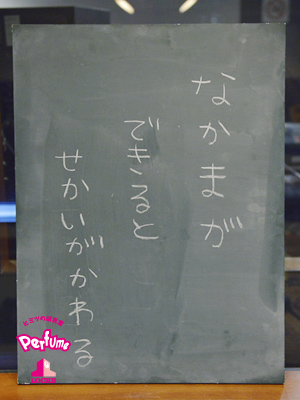 なかまが
できると
せかいがかわる
Perfume